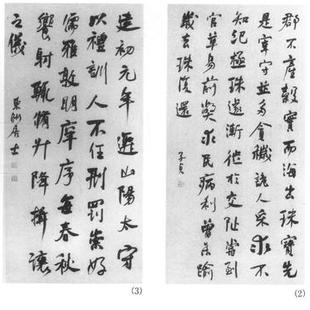 郡不產穀實而海出珠寶先
是宰守並多貪穢詭人采求不
知紀極珠遂漸徙於交阯嘗到
官革易前獘求民病利曾未踰
歲去珠復還
子貞
(2)
建初元年遷山陽太守
以禮訓人不任刑罰崇好
儒雅敦明庠序每春秋
饗射輒脩升降揖讓
之儀
東洲居士
(3)